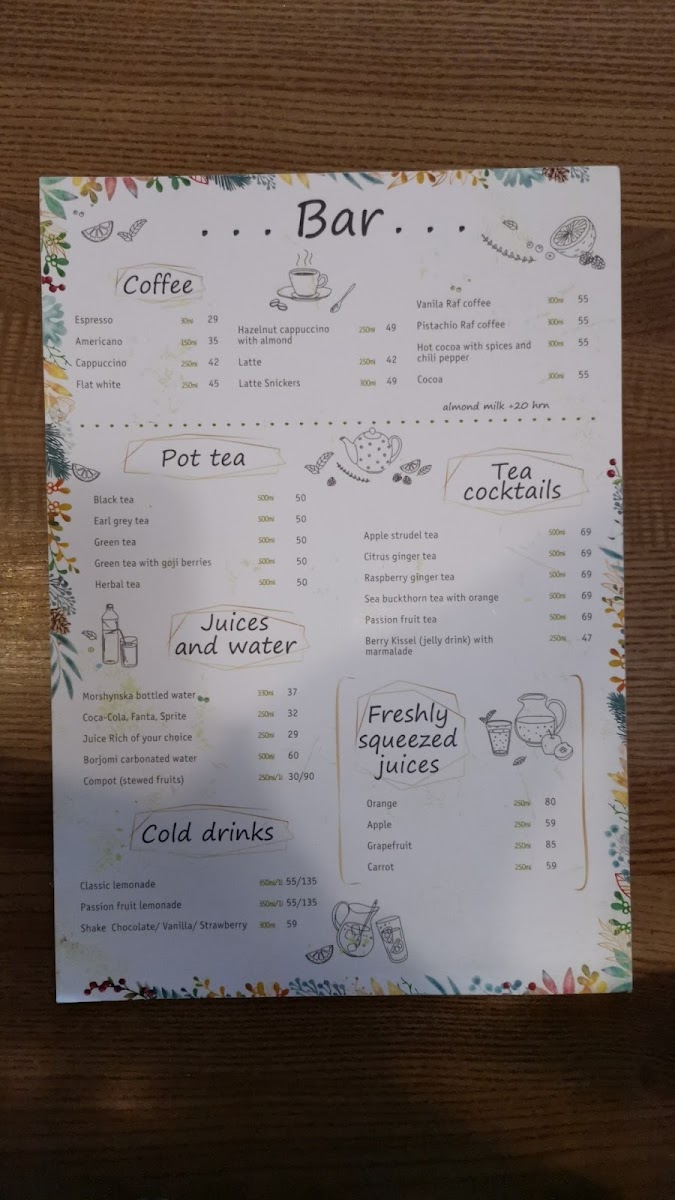 . . . Bar . . .
Coffee
Espresso 30ml 29
Americano 150ml 35
Cappuccino 250ml 42
Flat white 250ml 45
Hazelnut cappuccino 250ml 49
with almond
Latte 250ml 42
Latte Snickers 300ml 49
Vanila Raf coffee 300ml 55
Pistachio Raf coffee 300ml 55
Hot cocoa with spices and 300ml 55
chili pepper
Cocoa 300ml 55
almond milk +20 hrn
Pot tea
Black tea 500ml 50
Earl grey tea 500ml 50
Green tea 500ml 50
Green tea with goji berries 500ml 50
Herbal tea 500ml 50
Tea
cocktails
Apple strudel tea 500ml 69
Citrus ginger tea 500ml 69
Raspberry ginger tea 500ml 69
Sea buckthorn tea with orange 500ml 69
Passion fruit tea 500ml 69
Berry Kissel (jelly drink) with 250ml 47
marmalade
Juices
and water
Morshynska bottled water 330ml 37
Coca-Cola, Fanta, Sprite 250ml 32
Juice Rich of your choice 250ml 29
Borjomi carbonated water 500ml 60
Compot (stewed fruits) 250ml/1l 30/90
Freshly
squeezed
juices
Orange 250ml 80
Apple 250ml 59
Grapefruit 250ml 85
Carrot 250ml 59
Cold drinks
Classic lemonade 55/135
Passion fruit lemonade 55/135
Shake Chocolate/ Vanilla/ Strawberry 300ml 59